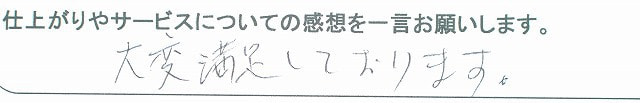 仕上がりやサービスについての感想を一言お願いします。
大変満足しております。